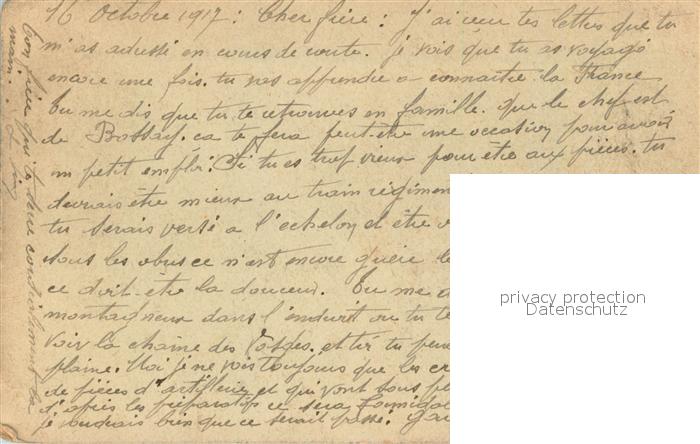 16 Octobre 1917 : Cher frère : J'ai reçu tes lettres que tu
m'as adressé en cours de route. je vois que tu as voyagé
encore une fois. tu vas apprendre a connaitre la France
tu me dis que tu te retrouves en famille. que le chef est
de Bossay. ca te fera peut-être une occasion pour avoir
un petit emploi. Si tu es trop vieux pour être aux pièces. tu
devrais être mieux au train régimen
tu serais versé a l'echelon et être
sous les obus ce n'est encore guère
ce doit-être la douceur. Tu me
montagneux dans l'endroit ou tu te
voir la chaine des Vosges. et ici tu peux
plaine. Moi je ne vois toujours que les
de pièces d'artillerie et qui vont tous
d'après les préparatifs ce sera formidable
je voudrais bien que ce serait passé.
Ton frère qui te serre cordialement la
main.
privacy protection
Datenschutz